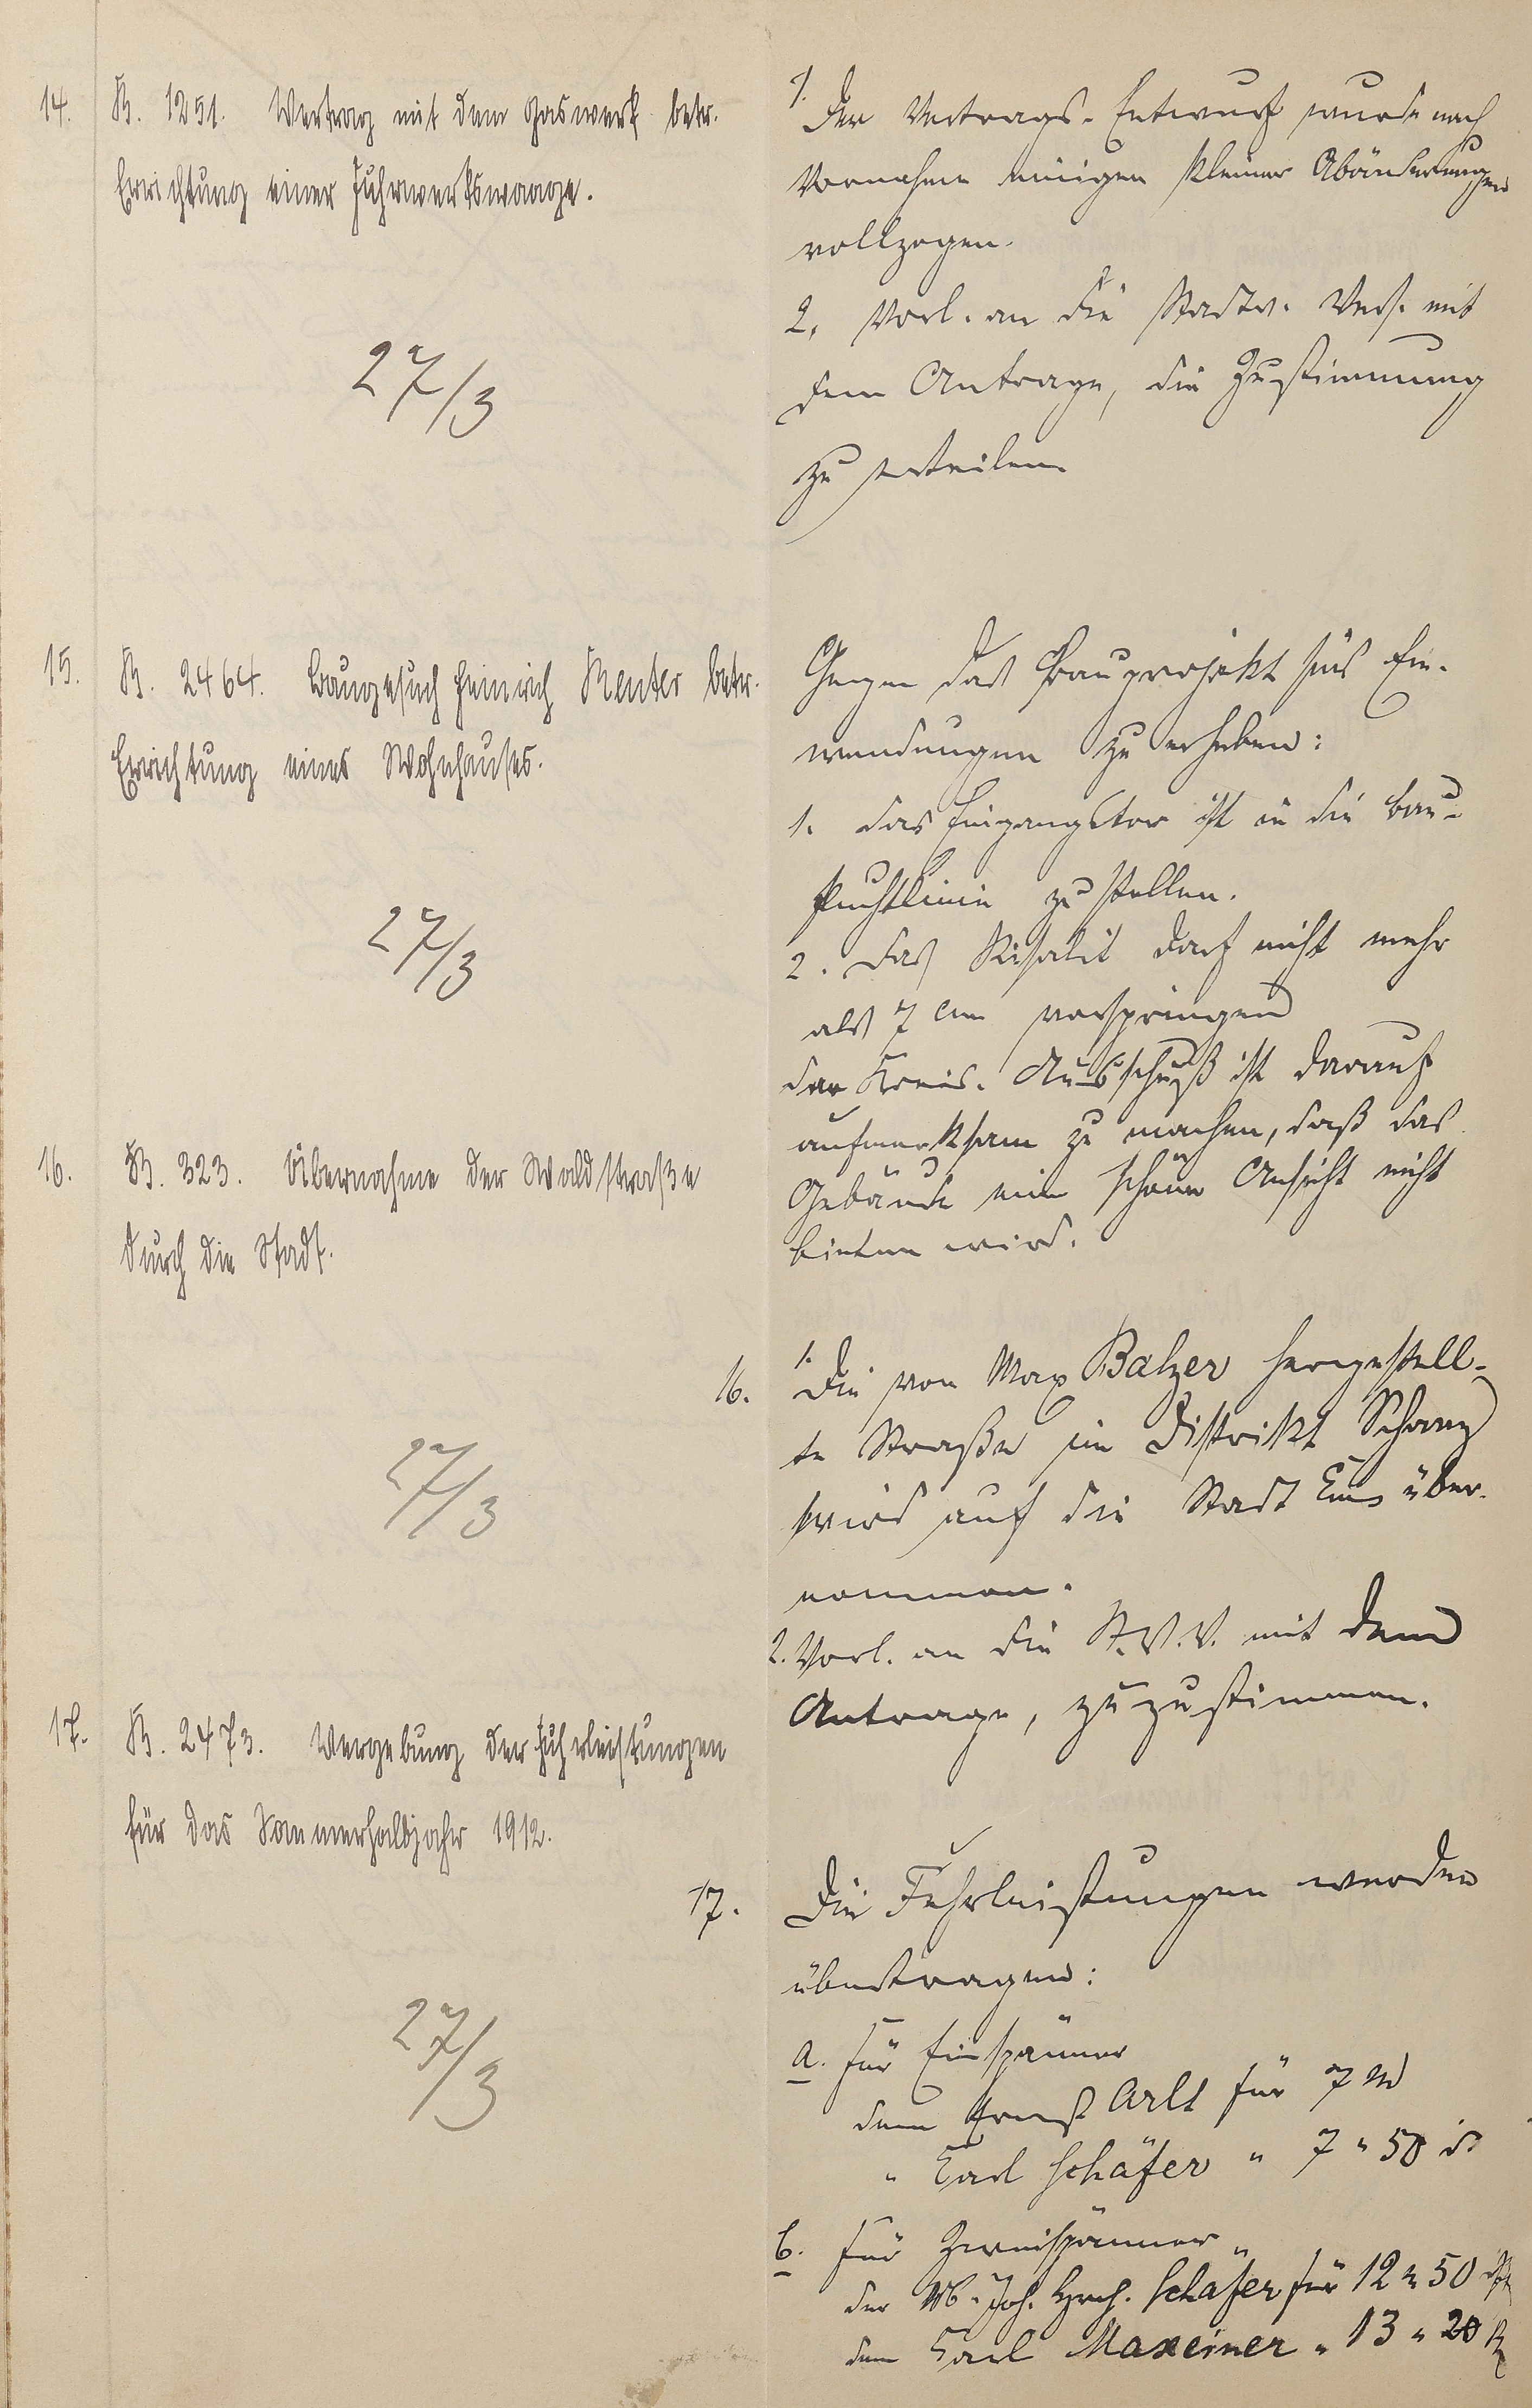 14. B. 1251. Vertrag mit dem Gaswerk betr.
Errichtung einer Fuhrwerkswaage.
27/3
1. Der Vertrags-Entwurf wurde nach
Vornahme einigen kleiner Abänderungen
vollzogen.
2. Vorl. an die Stadtv. Vers. mit
dem Antrage, die Zustimmung
zu erteilen
15. B. 2464. Baugesuch Heinrich Reuter betr.
Errichtung eines Wohnhauses.
27/3
Gegen das Bauprojekt sind Ein-
wendungen zu erheben:
1. Das Eingangstor ist in die Bau-
fluchtlinie zu stellen.
2. Das Risalit darf nicht mehr
als 7 cm vorspringen
Der Kreis-Ausschuß ist darauf
aufmerksam zu machen, daß das
Gebäude eine schöne Ansicht nicht
bieten wird.
16. B. 323. Übernahme der Waldstraße
durch die Stadt.
27/3
16. 1. Die von Max Balzer hergestell-
te Straße im Distrikt Schanz
wird auf die Stadt Ems über-
nommen.
2. Vorl. an die St.V.V. mit dem
Antrage, zuzustimmen.
17. B. 2473. Vergebung der Fuhrleistungen
für das Sommerhalbjahr 1912.
27/3
17. Die Fuhrleistungen werden
übertragen:
a. für Einspänner
dem Ernst Arlt für 7 M
" Carl Schäfer " 7 " 50 d
b. für Zweispänner
der W. Joh. Hrch. Schäfer für 12 " 50
dem Carl Maxeiner " 13 " 20